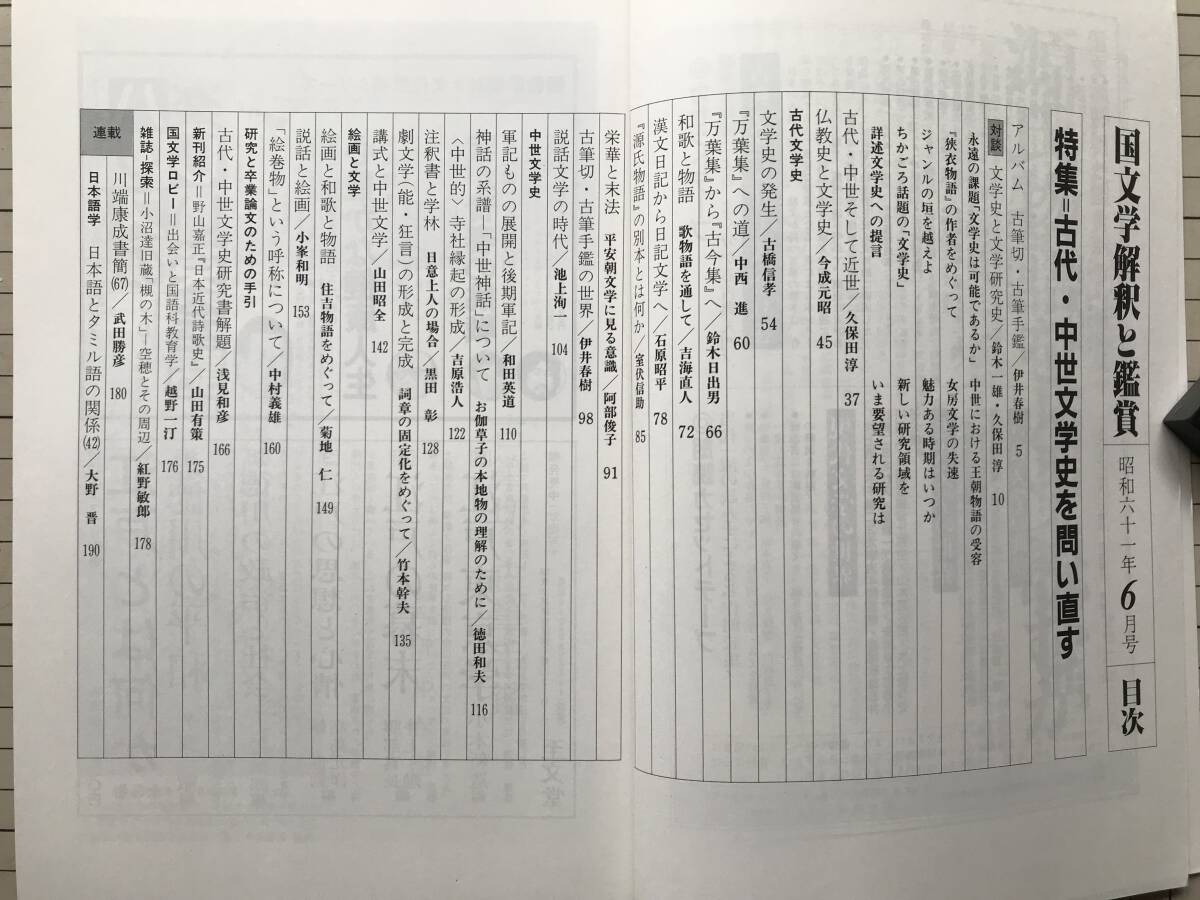 国文学解釈と鑑賞 昭和六十一年6月号 目次
特集=古代・中世文学史を問い直す
アルバム 古筆切・古筆手鑑/伊井春樹 5
対談 文学史と文学研究史/鈴木一雄・久保田淳 10
永遠の課題「文学史は可能であるか」 中世における王朝物語の受容
『狭衣物語』の作者をめぐって 女房文学の失速
ジャンルの垣を越えよ 魅力ある時期はいつか
ちかごろ話題の「文学史」 新しい研究領域を
詳述文学史への提言 いま要望される研究は
古代・中世そして近世/久保田淳 37
仏教史と文学史/今成元昭 45
古代文学史
文学史の発生/古橋信孝 54
『万葉集』への道/中西 進 60
『万葉集』から『古今集』へ/鈴木日出男 66
和歌と物語 歌物語を通して/吉海直人 72
漢文日記から日記文学へ/石原昭平 78
『源氏物語』の別本とは何か/室伏信助 85
栄華と末法 平安朝文学に見る意識/阿部俊子 91
古筆切・古筆手鑑の世界/伊井春樹 98
説話文学の時代/池上洵一 104
中世文学史
軍記ものの展開と後期軍記/和田英道 110
神話の系譜―「中世神話」について お伽草子の本地物の理解のために/徳田和夫 116
〈中世的〉寺社縁起の形成/吉原浩人 122
注釈書と学林 日意上人の場合/黒田 彰 128
劇文学(能・狂言)の形成と完成 詞章の固定化をめぐって/竹本幹夫 135
講式と中世文学/山田昭全 142
絵画と文学
絵画と和歌と物語 住吉物語をめぐって/菊地 仁 149
説話と絵画/小峯和明 153
「絵巻物」という呼称について/中村義雄 160
研究と卒業論文のための手引
古代・中世文学史研究書解題/浅見和彦 166
新刊紹介=野山嘉正『日本近代詩歌史』/山田有策 175
国文学ロビー=出会いと国語科教育学/越野一汀 176
雑誌-探索=小沼達旧蔵「槻の木」―空穂とその周辺/紅野敏郎 178
連載 川端康成書簡(67)/武田勝彦 180
日本語学 日本語とタミル語の関係(42)/大野 晋 190